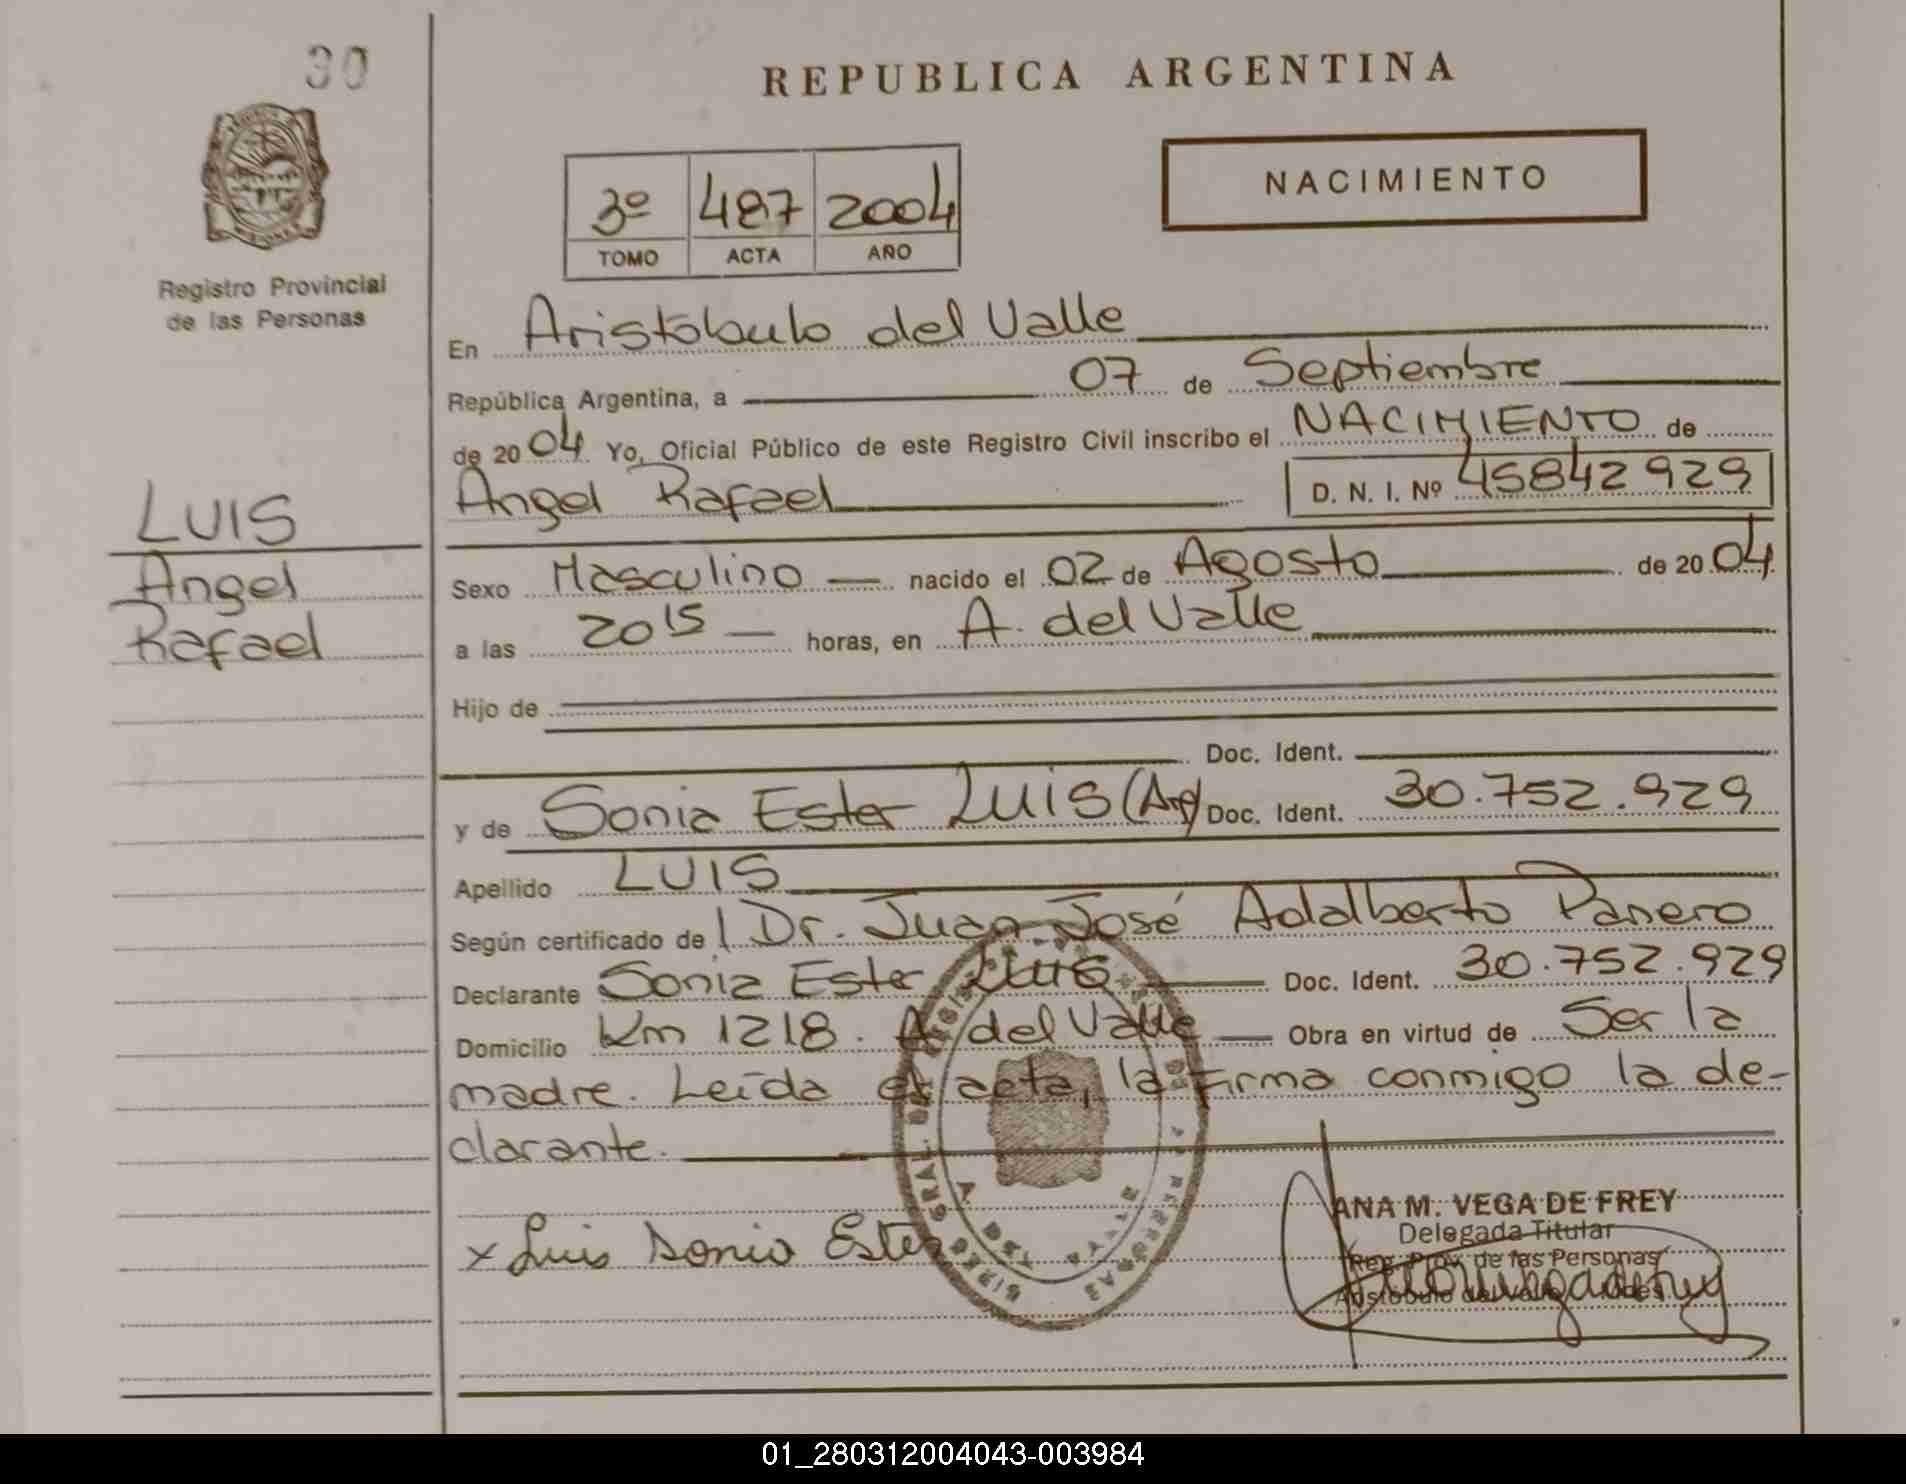 30
REPUBLICA ARGENTINA
NACIMIENTO
3º 487 2004
TOMO ACTA AÑO
Registro Provincial
de las Personas
En Aristobulo del Valle
República Argentina, a 07 de Septiembre
de 2004 Yo, Oficial Público de este Registro Civil inscribo el NACIMIENTO de
Angel Rafael D. N. I. Nº 45842929
LUIS
Angel
Rafael
Sexo Masculino nacido el 02 de Agosto de 2004
a las 20 15 horas, en A. del Valle
Hijo de
Doc. Ident.
y de Sonia Ester Luis (Arg) Doc. Ident. 30.752.929
Apellido LUIS
Según certificado de Dr. Juan José Adalberto Panero
Declarante Sonia Ester Luis Doc. Ident. 30.752.929
Domicilio Km 1218. A. del Valle Obra en virtud de Ser la
madre. Leída el acta, la firma conmigo la de-
clarante.
x Luis Sonia Ester
ANA M. VEGA DE FREY
Delegada Titular
Reg. Prov. de las Personas
01_280312004043-003984